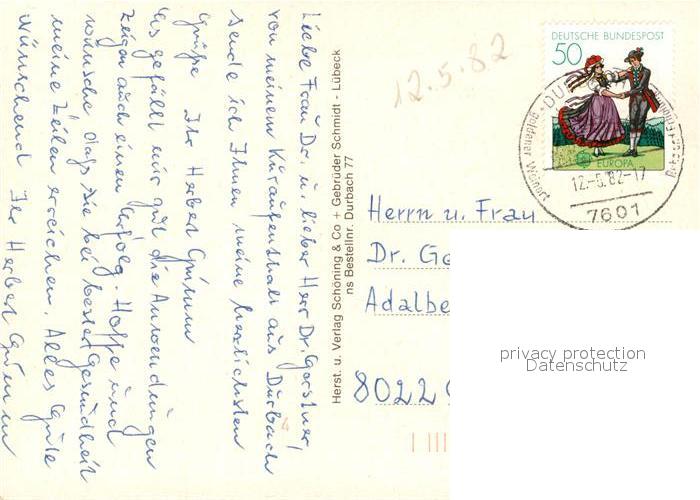 Liebe Frau Dr. u. lieber Herr Dr. Gorstner,
von meinem Kuraufenthalt aus Durbach
sende ich Ihnen meine herzlichsten
Grüße Ihr Herbert Grimm
Es gefällt mir gut die Anwendungen
zeigen auch einen Erfolg. Hoffe und
wünsche daß Sie bei bester Gesundheit
meine Zeilen erreichen. Alles Gute
wünschend Ihr Herbert Grimm
Herst. u. Verlag Schöning & Co + Gebrüder Schmidt - Lübeck
ns Bestellnr. Durbach 77
12.5.82
DEUTSCHE BUNDESPOST
50
EUROPA
goldener Weinort
12.-5.82-17
7601
Herrn u. Frau
Dr. Ge
Adalbe
8022 G
privacy protection
Datenschutz